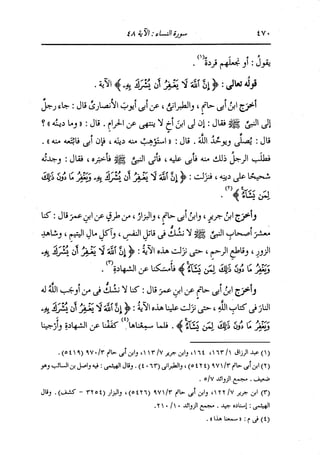 ٤٧٠ سورة النساء : الآية ٤٨
يقولُ : أو نجعلَهم قردةً(١) .
قولُه تعالى : ﴿ إِنَّ ٱللَّهَ لَا يَغْفِرُ أَن يُشْرَكَ بِهِۦ ﴾ الآية .
أخرَج ابنُ أبى حاتمٍ ، والطبرانىُّ ، عن أبى أيوبَ الأنصارىِّ قال : جاء رجلٌ
إلى النبىِّ ﷺ فقال : إن لى ابنَ أخٍ لا ينتهى عن الحرامِ . قال : « وما دينُه » ؟
قال : يُصلِّى ويوحِّدُ اللهَ . قال : « استوهِبْ منه دينَه ، فإن أبى فابتَعْه منه » .
فطلَب الرجلُ ذلك منه فأبَى عليه ، فأتَى النبىَّ ﷺ فأخبرَه ، فقال : وجدتُه
شحيحًا على دينِه ، فنزَلت : ﴿ إِنَّ ٱللَّهَ لَا يَغْفِرُ أَن يُشْرَكَ بِهِۦ وَيَغْفِرُ مَا دُونَ ذَٰلِكَ
لِمَن يَشَآءُ ﴾(٢) .
وأخرَج ابنُ جريرٍ ، وابنُ أبى حاتمٍ ، والبزارُ ، من طرقٍ عن ابنِ عمرَ قال : كنا
معشرَ أصحابِ النبىِّ ﷺ لا نشُكُّ فى قاتلِ النفسِ ، وآكلِ مالِ اليتيمِ ، وشاهدِ
الزورِ ، وقاطعِ الرحمِ ، حتى نزَلت هذه الآيةُ : ﴿ إِنَّ ٱللَّهَ لَا يَغْفِرُ أَن يُشْرَكَ بِهِۦ
وَيَغْفِرُ مَا دُونَ ذَٰلِكَ لِمَن يَشَآءُ ﴾ فأمسَكنا عن الشهادةِ(٣) .
وأخرَج ابنُ أبى حاتمٍ عن ابنِ عمرَ قال : كنا لا نشُكُّ فى من أوجَب اللهُ له
النارَ فى كتابِ اللهِ ، حتى نزَلت علينا هذه الآيةُ : ﴿ إِنَّ ٱللَّهَ لَا يَغْفِرُ أَن يُشْرَكَ بِهِۦ
وَيَغْفِرُ مَا دُونَ ذَٰلِكَ لِمَن يَشَآءُ ﴾ . فلما سمِعناها(٤) كفَفنا عن الشهادةِ وأرجَينا
(١) عبد الرزاق ١/ ١٦٣، ١٦٤، وابن جرير ٧/ ١١٣، وابن أبى حاتم ٣/ ٩٧٠ (٥٤١٩) .
(٢) ابن أبى حاتم ٣/ ٩٧١ (٥٤٢٤) ، والطبرانى (٤٠٦٣) . وقال الهيثمى : فيه واصل بن السائب وهو
ضعيف . مجمع الزوائد ٧/ ٥.
(٣) ابن جرير ٧/ ١٢٢، وابن أبى حاتم ٣/ ٩٧١ (٥٤٢٦) ، والبزار (٣٢٥٤ - كشف) . وقال
الهيثمى : إسناده جيد . مجمع الزوائد ١٠/ ٢١٠.
(٤) فى م : « سمعنا هذا » .